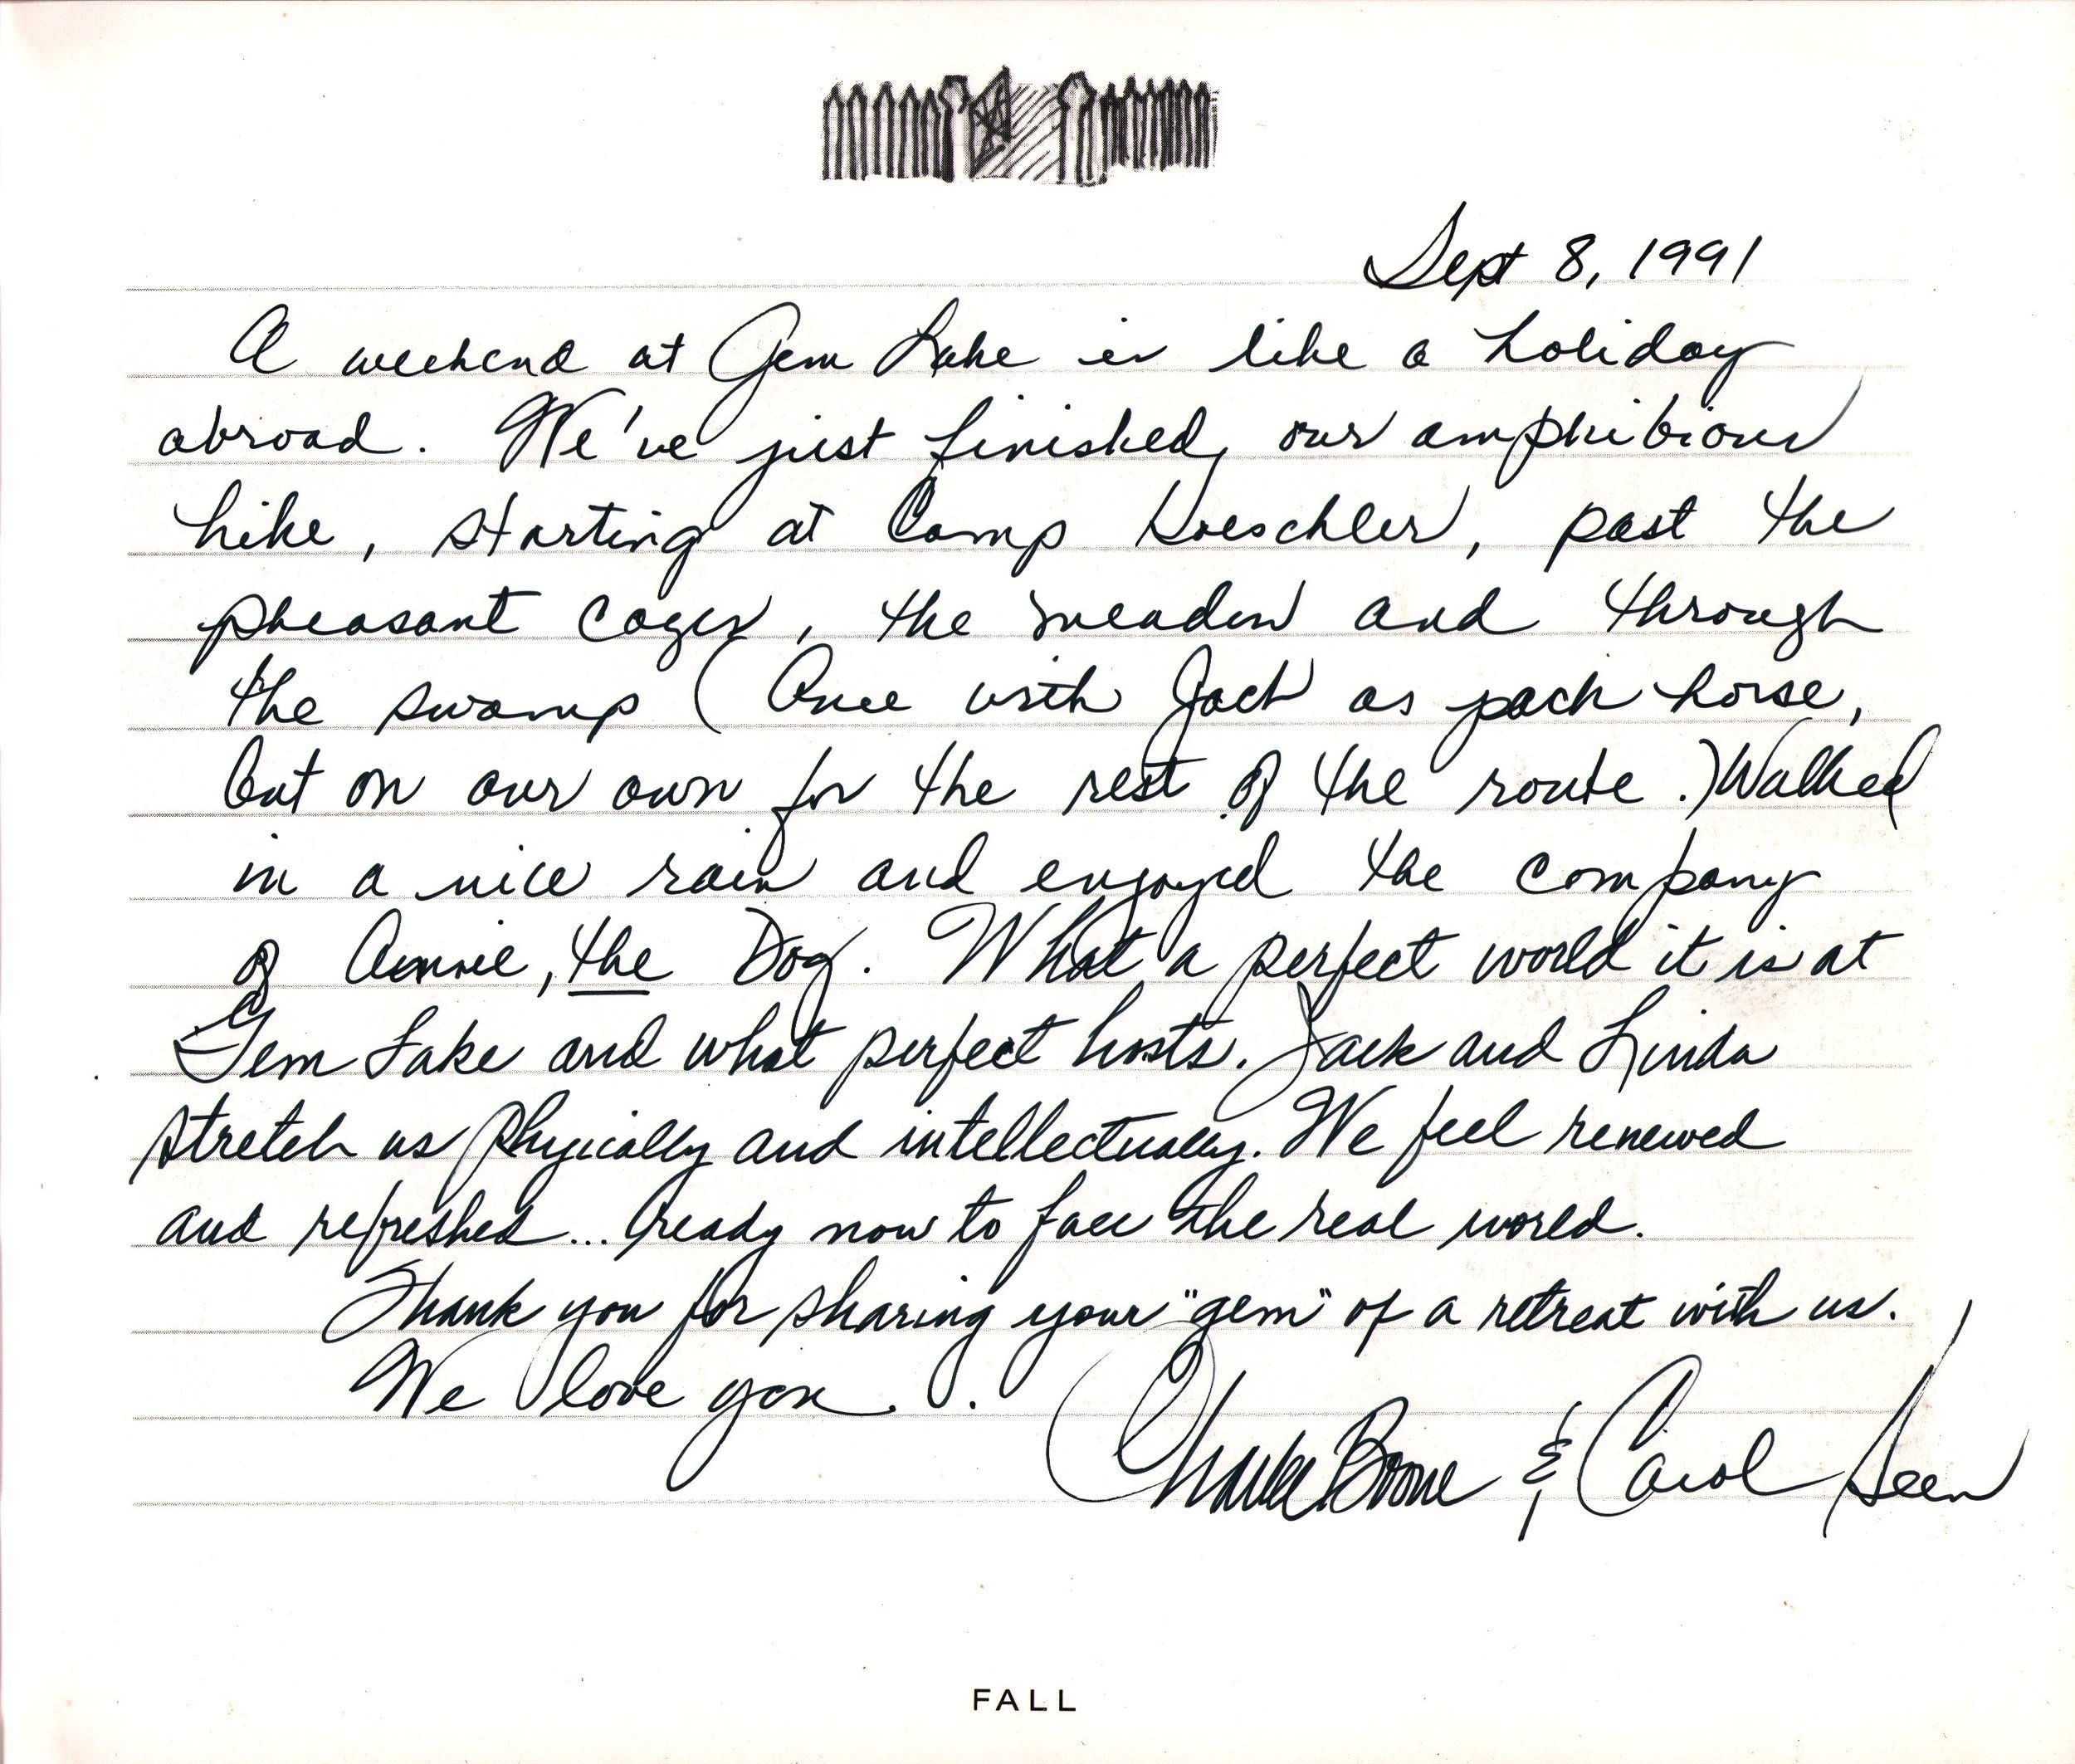 Sept 8, 1991
A weekend at Gem Lake is like a holiday
abroad. We've just finished our amphibious
hike, starting at Camp Koeschler, past the
pheasant cages, the meadow and through
the swamp (Once with Jack as pack horse,
but on our own for the rest of the route.) Walked
in a nice rain and enjoyed the company
of Annie, the Dog. What a perfect world it is at
Gem Lake and what perfect hosts. Jack and Linda
stretch us phyically and intellectually. We feel renewed
and refreshed... ready now to face the real world.
Thank you for sharing your "gem" of a retreat with us.
We love you.
Charlie Boone & Carol Heen
FALL